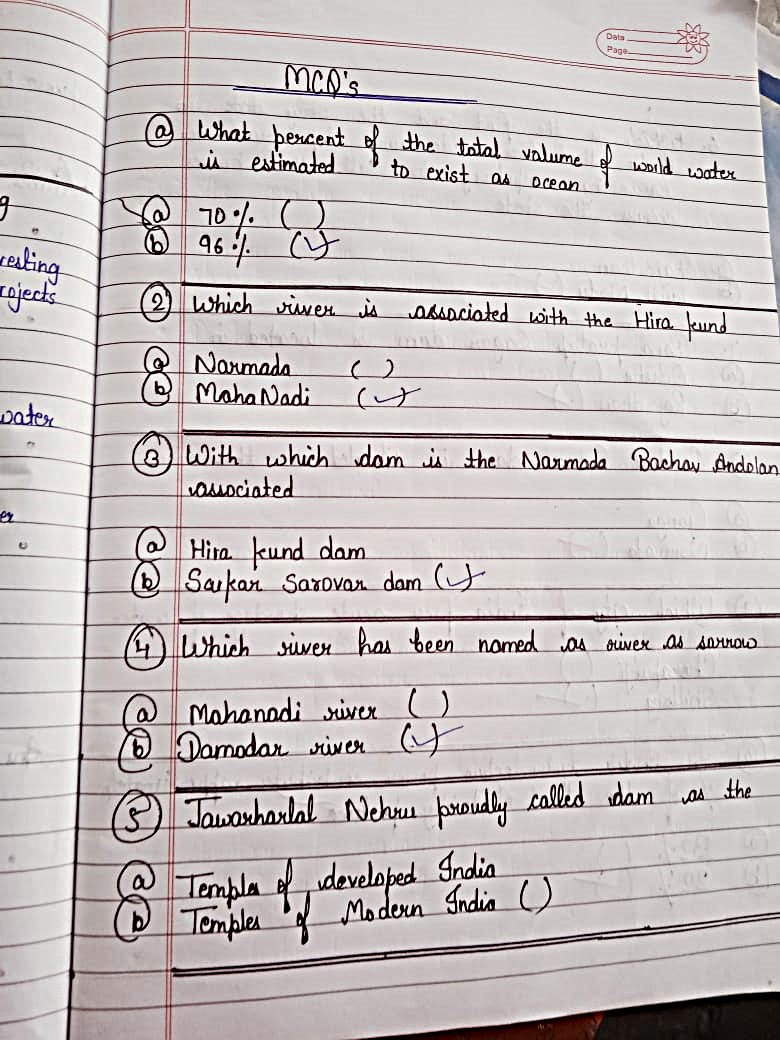 Date
Page
MCQ's
ⓐ What percent of the total volume of world water
is estimated to exist as ocean
ⓐ 70% ( )
ⓑ 96% (✓)
② Which river is associated with the Hira kund
ⓐ Narmada ( )
ⓑ MahaNadi (✓)
③ With which dam is the Narmada Bachav Andolan
associated
ⓐ Hira kund dam
ⓑ Sarkar Sarovar dam (✓)
④ Which river has been named as river as sorrow
ⓐ Mahanadi river ( )
ⓑ Damodar river (✓)
⑤ Jawarharlal Nehru proudly called dam as the
ⓐ Temples of developed India
ⓑ Temples of Modern India ( )
g
resting
rojects
water
er